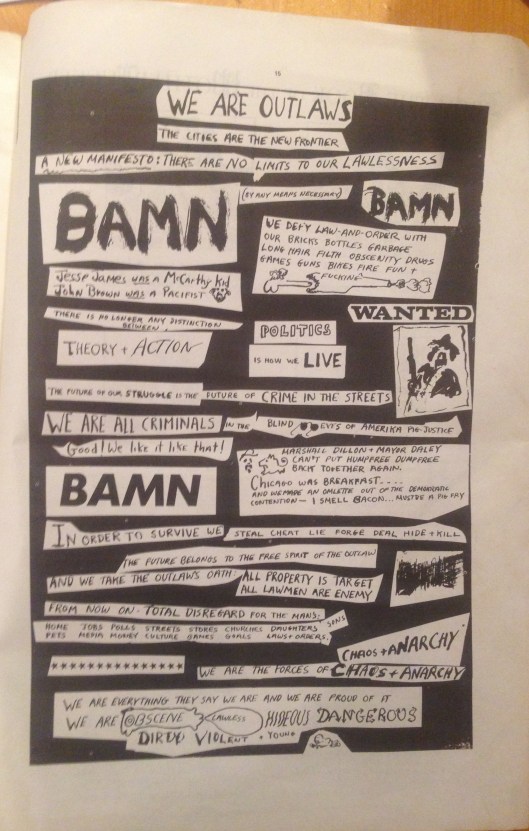 15
WE ARE OUTLAWS
THE CITIES ARE THE NEW FRONTIER
A NEW MANIFESTO: THERE ARE NO LIMITS TO OUR LAWLESSNESS
BAMN
(BY ANY MEANS NECESSARY)
BAMN
WE DEFY LAW-AND-ORDER WITH
OUR BRICKS BOTTLES GARBAGE
LONG HAIR FILTH OBSCENITY DRUGS
GAMES GUNS BIKES FIRE FUN +
FUCKING
Jesse James was a McCarthy kid
John Brown was a Pacifist
THERE IS NO LONGER ANY DISTINCTION
BETWEEN
THEORY + ACTION
POLITICS
IS HOW WE LIVE
WANTED
THE FUTURE OF OUR STRUGGLE IS THE FUTURE OF CRIME IN THE STREETS
WE ARE ALL CRIMINALS IN THE BLIND EYES OF AMERIKA PIG-JUSTICE
Good! We like it like that!
BAMN
MARSHALL DILLON + MAYOR DALEY
CAN'T PUT HUMPFREE DUMPFREE
BACK TOGETHER AGAIN.
CHICAGO WAS BREAKFAST....
AND WE MADE AN OMLETTE OUT OF THE DEMOCRATIC
CONVENTION - I SMELL BACON... MUSTBE A PIG FRY
IN ORDER TO SURVIVE WE STEAL CHEAT LIE FORGE DEAL HIDE + KILL
THE FUTURE BELONGS TO THE FREE SPIRIT OF THE OUTLAW
AND WE TAKE THE OUTLAWS OATH: ALL PROPERTY IS TARGET
ALL LAWMEN ARE ENEMY
FROM NOW ON - TOTAL DISREGARD FOR THE MANS:
HOME JOBS POLLS STREETS STORES CHURCHES DAUGHTERS SONS
PETS MEDIA MONEY CULTURE GAMES GOALS LAWS + ORDERS,
CHAOS + ANARCHY
***************
WE ARE THE FORCES OF CHAOS + ANARCHY
WE ARE EVERYTHING THEY SAY WE ARE AND WE ARE PROUD OF IT
WE ARE OBSCENE LAWLESS HIDEOUS DANGEROUS
DIRTY VIOLENT + YOUNG